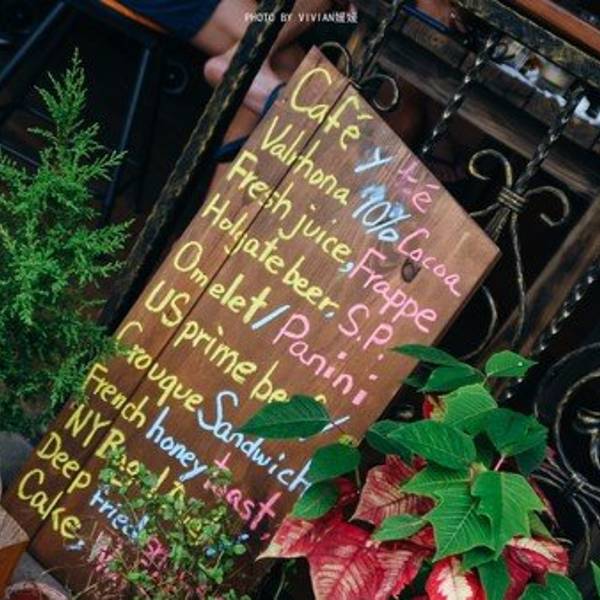 PHOTO BY VIVIAN媛媛
Café y té
Valrhona 70% Cocoa
Fresh juice, Frappe
Holgate beer, S.P.
Omelet/Panini
US prime beef/
Crouque Sandwich
French honey toast,
NY Bagel
Deep Fried
Cake,